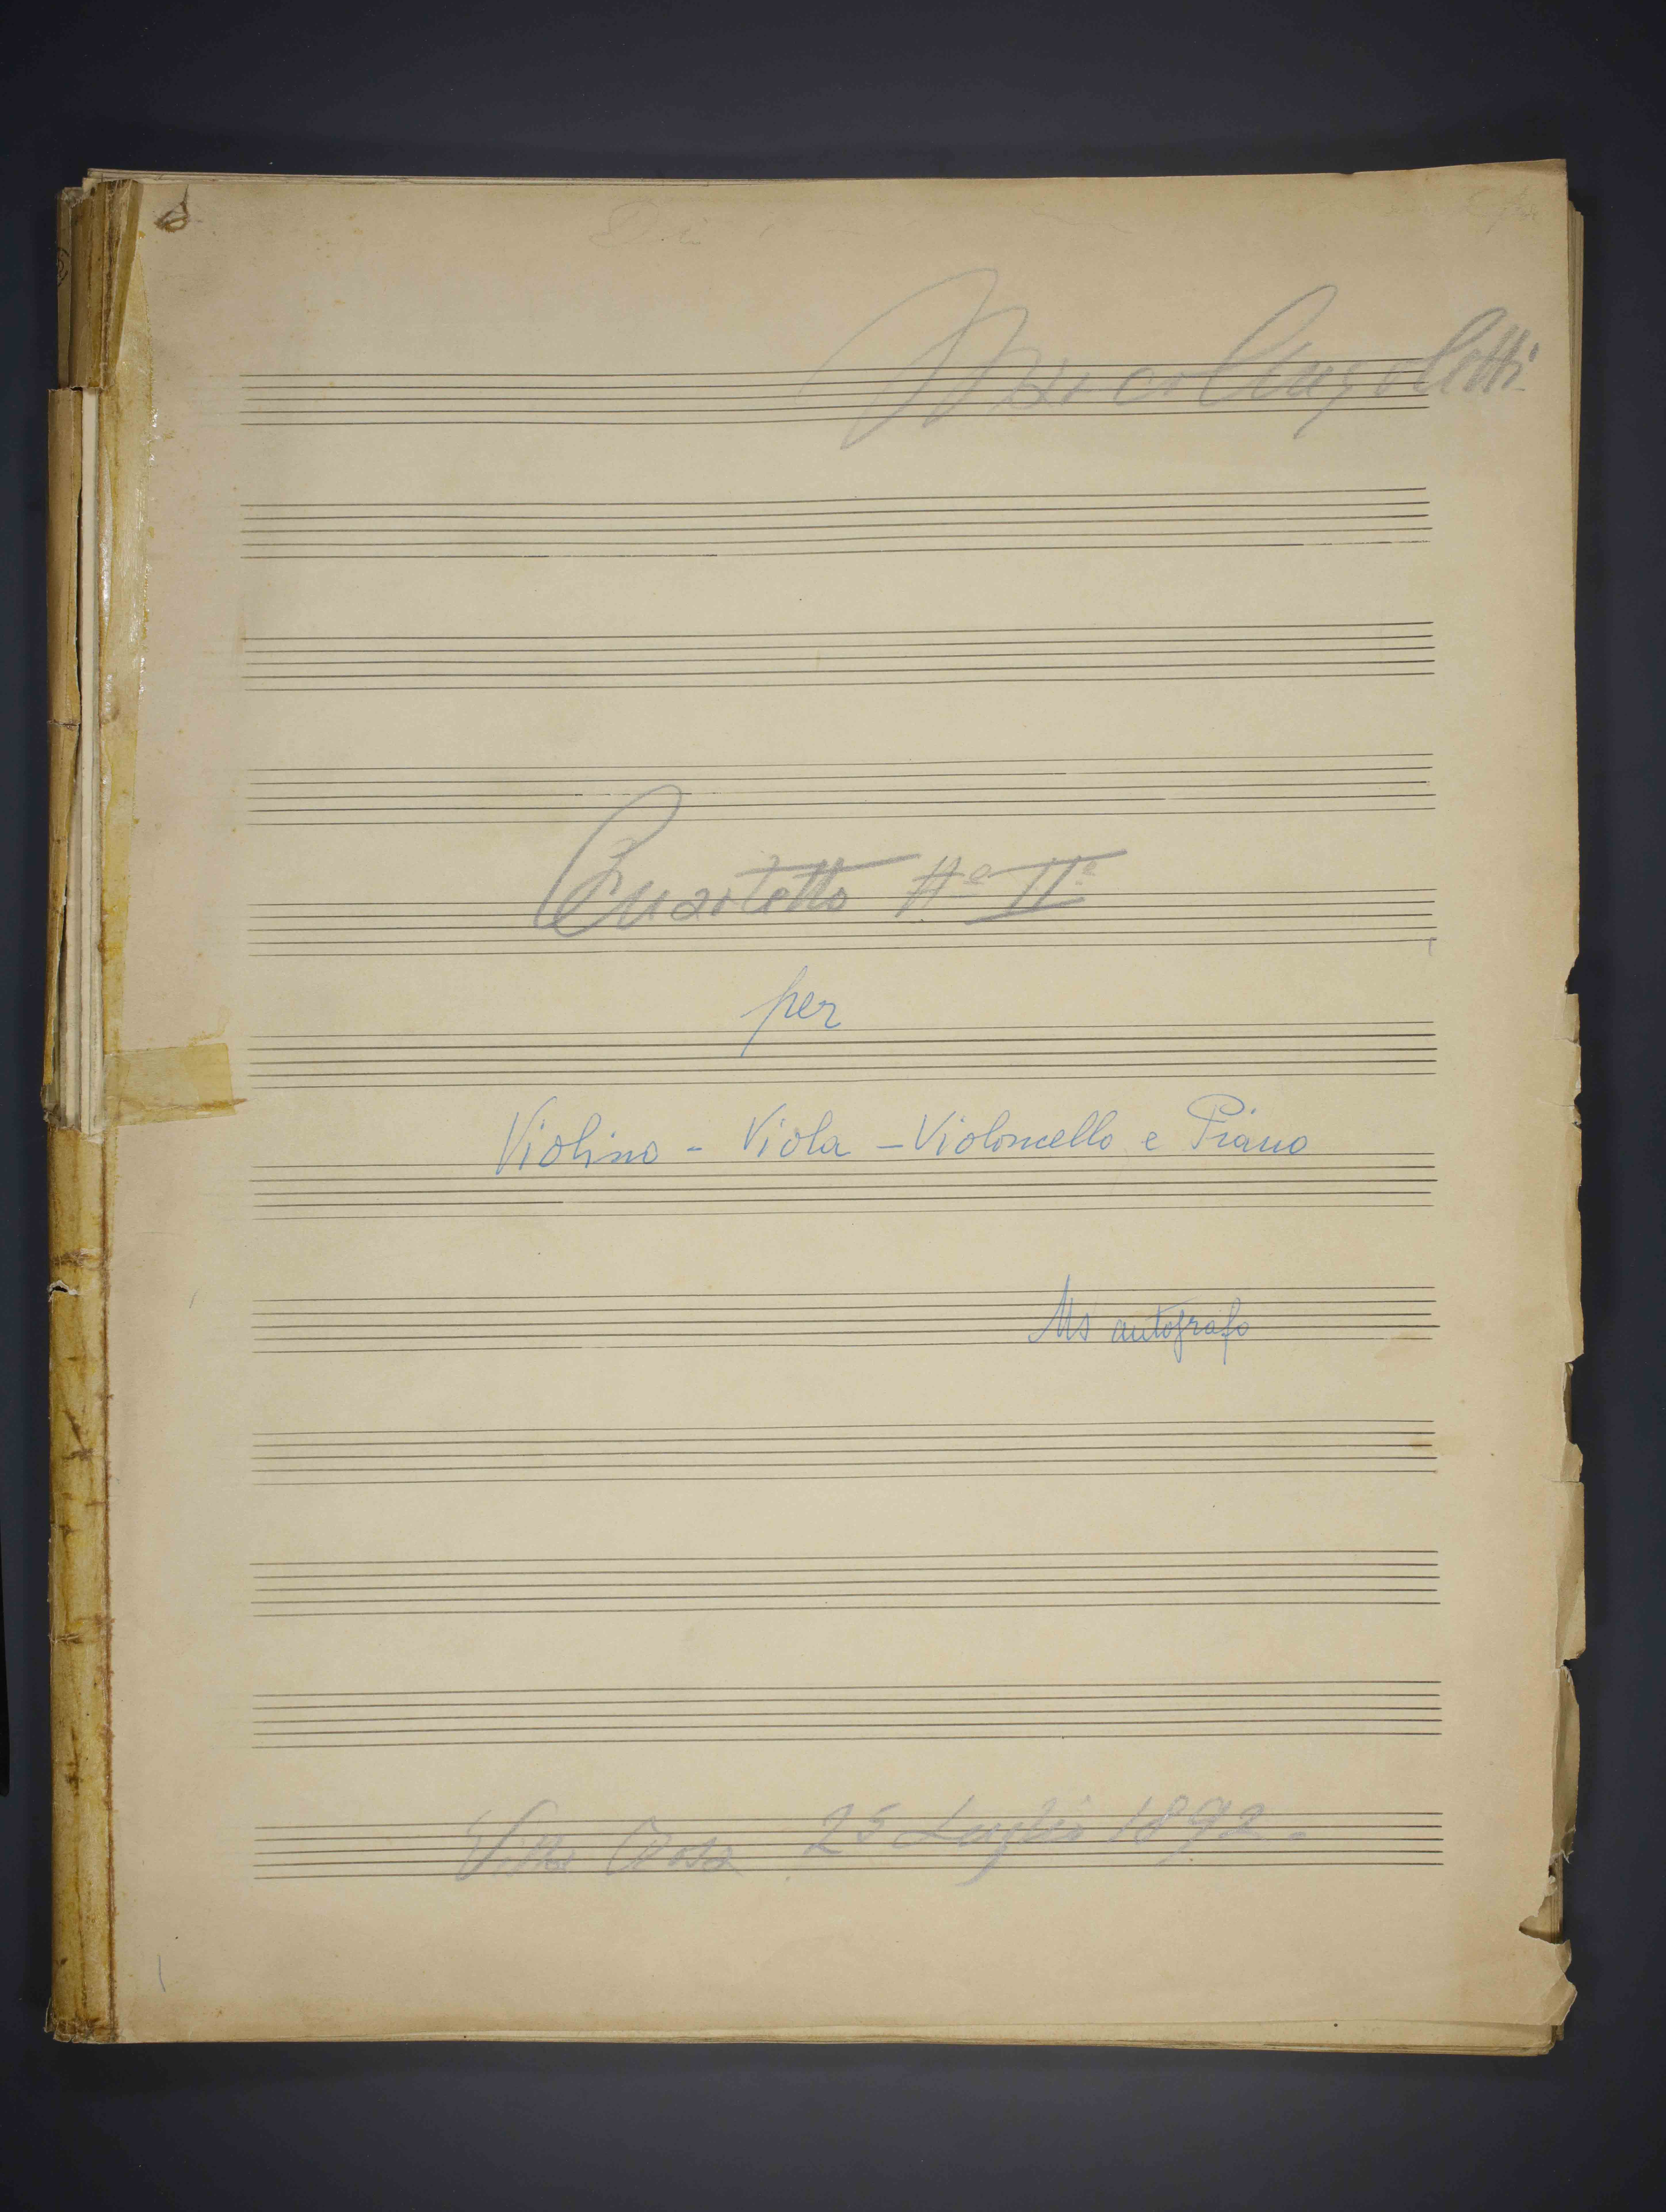 Marco Anzoletti
Quartetto Nº IIº
per
Violino - Viola - Violoncello e Piano
Ms autografo
Villa Rosa 25 Luglio 1892 -